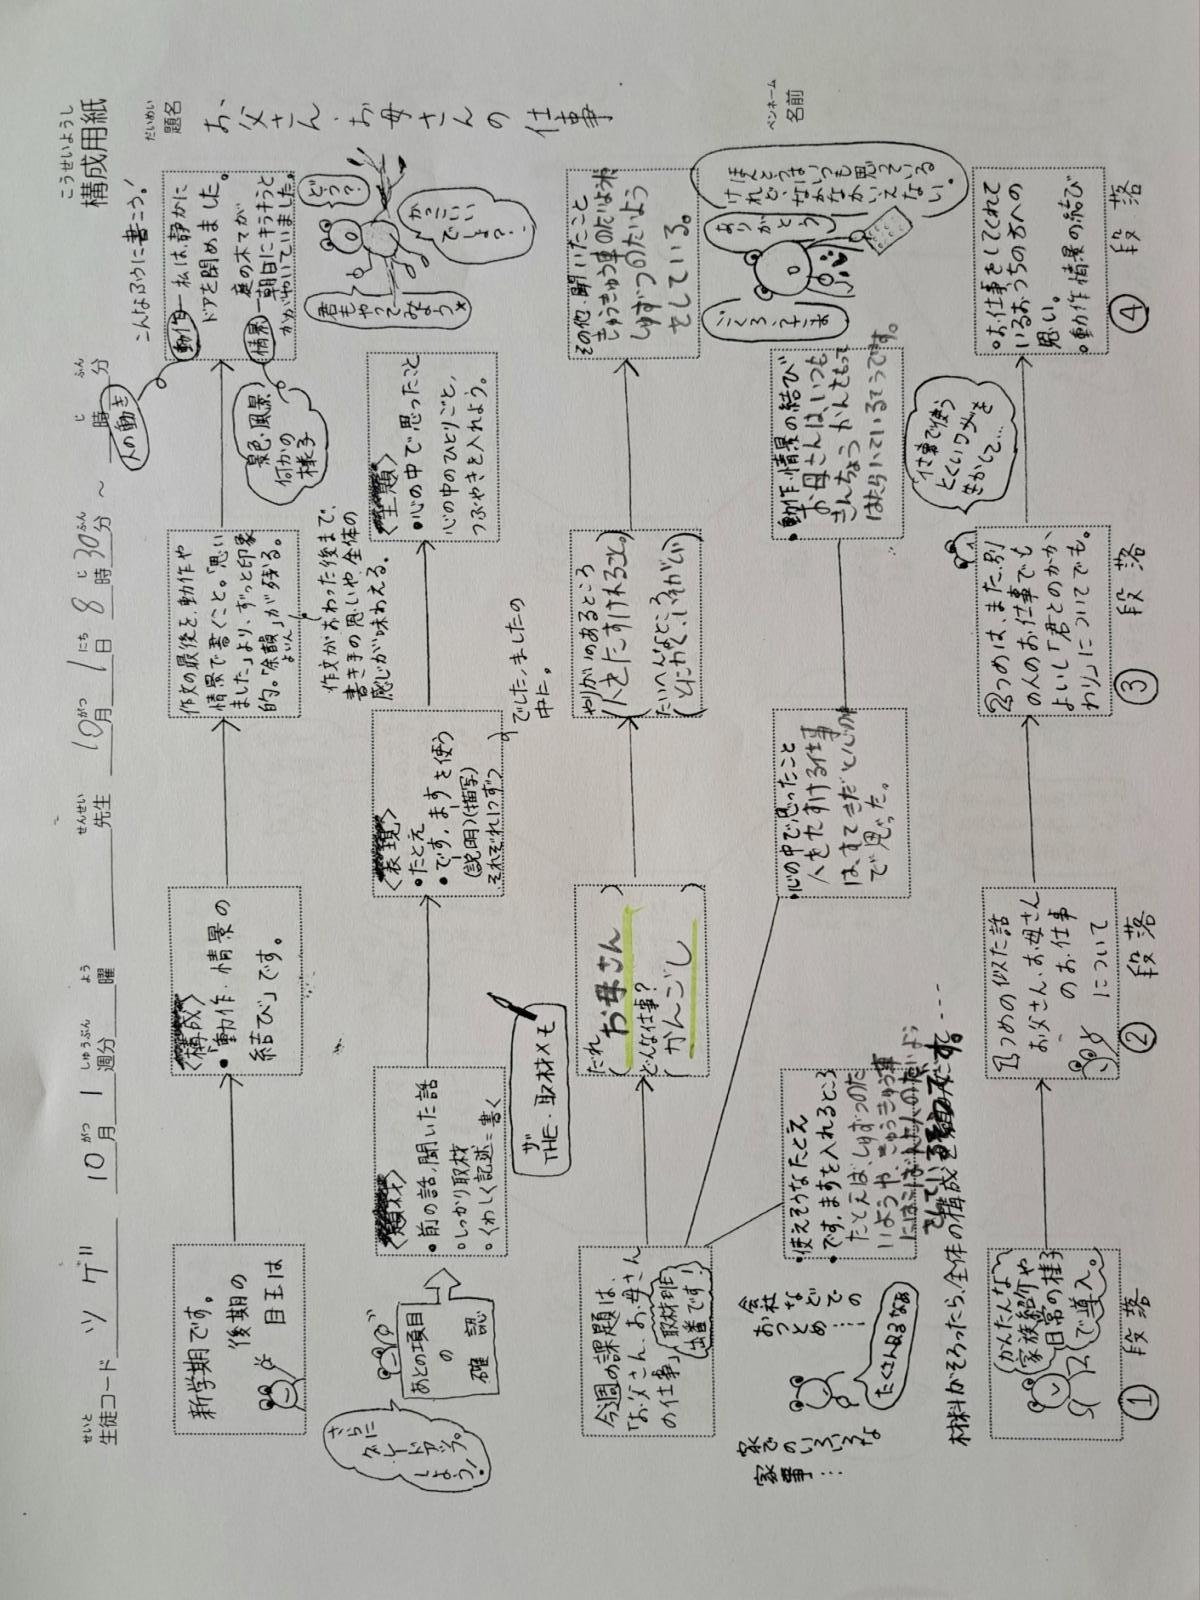 こうせいようし
構成用紙
せいと
生徒コード ツゲ川 10月1週分 曜 先生 10月1日8時30分～ 時 分
がつ しゅうぶん よう せんせい がつ にち じ ふん じ ふん
だいめい
題名
お父さん・お母さんの仕事
ペンネーム
名前
新学期です。
後期の
目玉は
〈構成〉
・「動作・情景の
結び」です。
作文の最後を、動作や
情景で書くこと。「思い
ました」より、ずっと印象
的。「余韻」が残る。
よいん
作文がおわった後まで、
書き手の思いや、全体の
感じが味わえる。
こんなふうに書こう！
人の動き
動作―私は静かに
ドアを閉めました。
情景―庭の木々が
朝日にキラキラと
かがやいていました。
景色・風景
何かの
様子
さらに
グレードアップ
しよう！
あとの項目
の
確認
〈題材〉
・前の話、聞いた話
・しっかり取材
・くわしく記述=書く
〈表現〉
・たとえ
・です、ますを使う
(説明)(描写)
それぞれ1つずつ
でした、ましたの
中に。
〈主題〉
・心の中で思ったこと
心の中のひとりごと、
つぶやきを入れよう。
どう？
かっこいい
でしょ？
君もやってみよう
ザ
THE・取材メモ
今週の課題は、
「お父さん、お母さん
の仕事」
取材が
出番です！
だれ
(お母さん)
どんな仕事？
(かんごし)
やりがいのあるところ
(人をたすけれること。)
たいへんなところ
(とにかく、いそがしい)
その他・聞いたこと
きゅうきゅう車のたいよ
しゅずつのたいよう
をしている。
家での
いろいろな
家事…
会社
などで
の
おつとめ…
たくさんあるなぁ
・使えそうなたとえ
・です、ますを入れるところ
たとえば、しゅずつのた
いようや、きゅうきゅう車
にはこばれた人のたいよう
をしているそうです。
・心の中で思ったこと
人をたすける仕事
は、すてきだと心の中
で思った。
・動作・情景の結び
お母さんは、いつも
きんちょうかんをもって
はたらいているそうです。
ごくろうさま
ありがとう
ほんとうはいつも思っている
けれど、なかなかいえない。
材料がそろったら、全体の構成
かんたんな
家族紹介や
日常の様子
で導入。
①段落
1つめの似た話
お父さん、お母さん
のお仕事
について
②段落
2つめは、また、別
の人のお仕事でも
よいし「君とのかか
わり」についてでも。
③段落
仕事で使う
とくいワザを
生かして…
・お仕事をしてくれて
いるおうちの方への
思い。
・動作・情景の結び
④段落